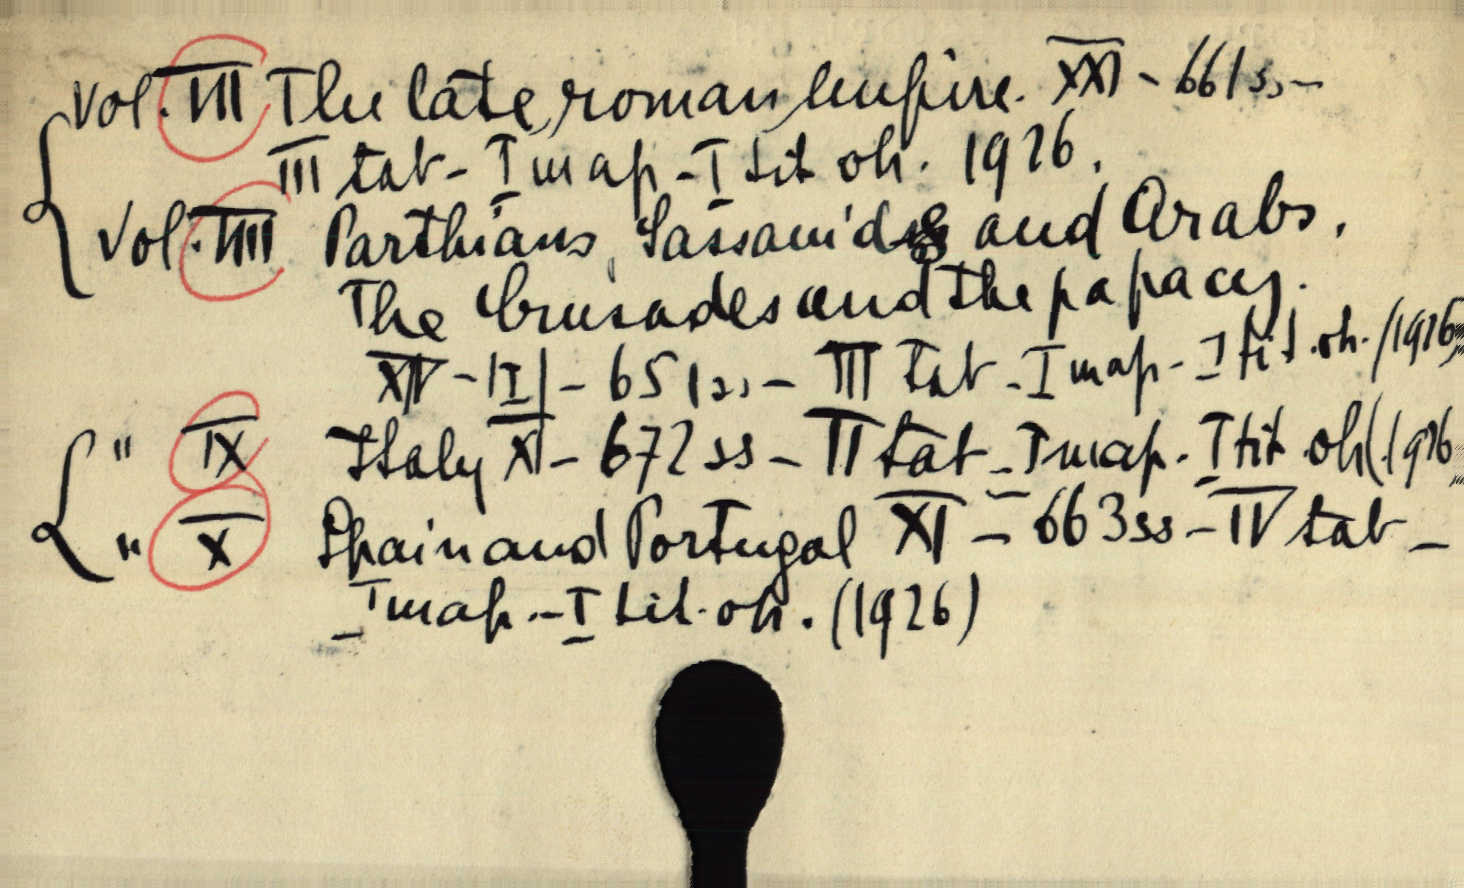 Vol. VII The late roman empire. XXI - 661 s, -
III tab - I map - I tit oh. 1926.
Vol. VIII Parthians, Sassanids and Arabs.
The Crusades and the papacy.
XIV - |I| - 651 ss - III tab - I map - I tit. oh. (1926)
" IX Italy XI - 672 ss - II tab - I map. I tit. oh (1926
" X Spain and Portugal XI - 663 ss - IV tab -
I map. - I tit. oh. (1926)